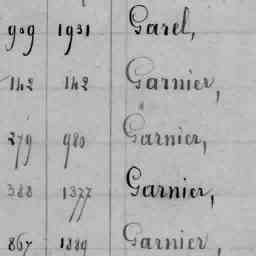 909 1931 Garel,
142 142 Garnier,
279 980 Garnier,
388 1377 Garnier,
867 1889 Garnier,